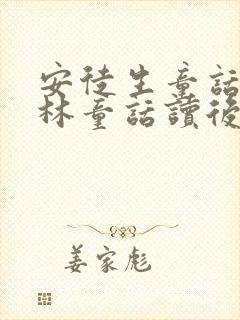 安徒生童話
林童話讀後
姜家彪